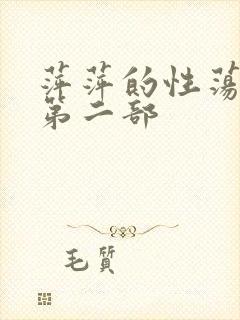 萍萍的性荡
第二部
毛質